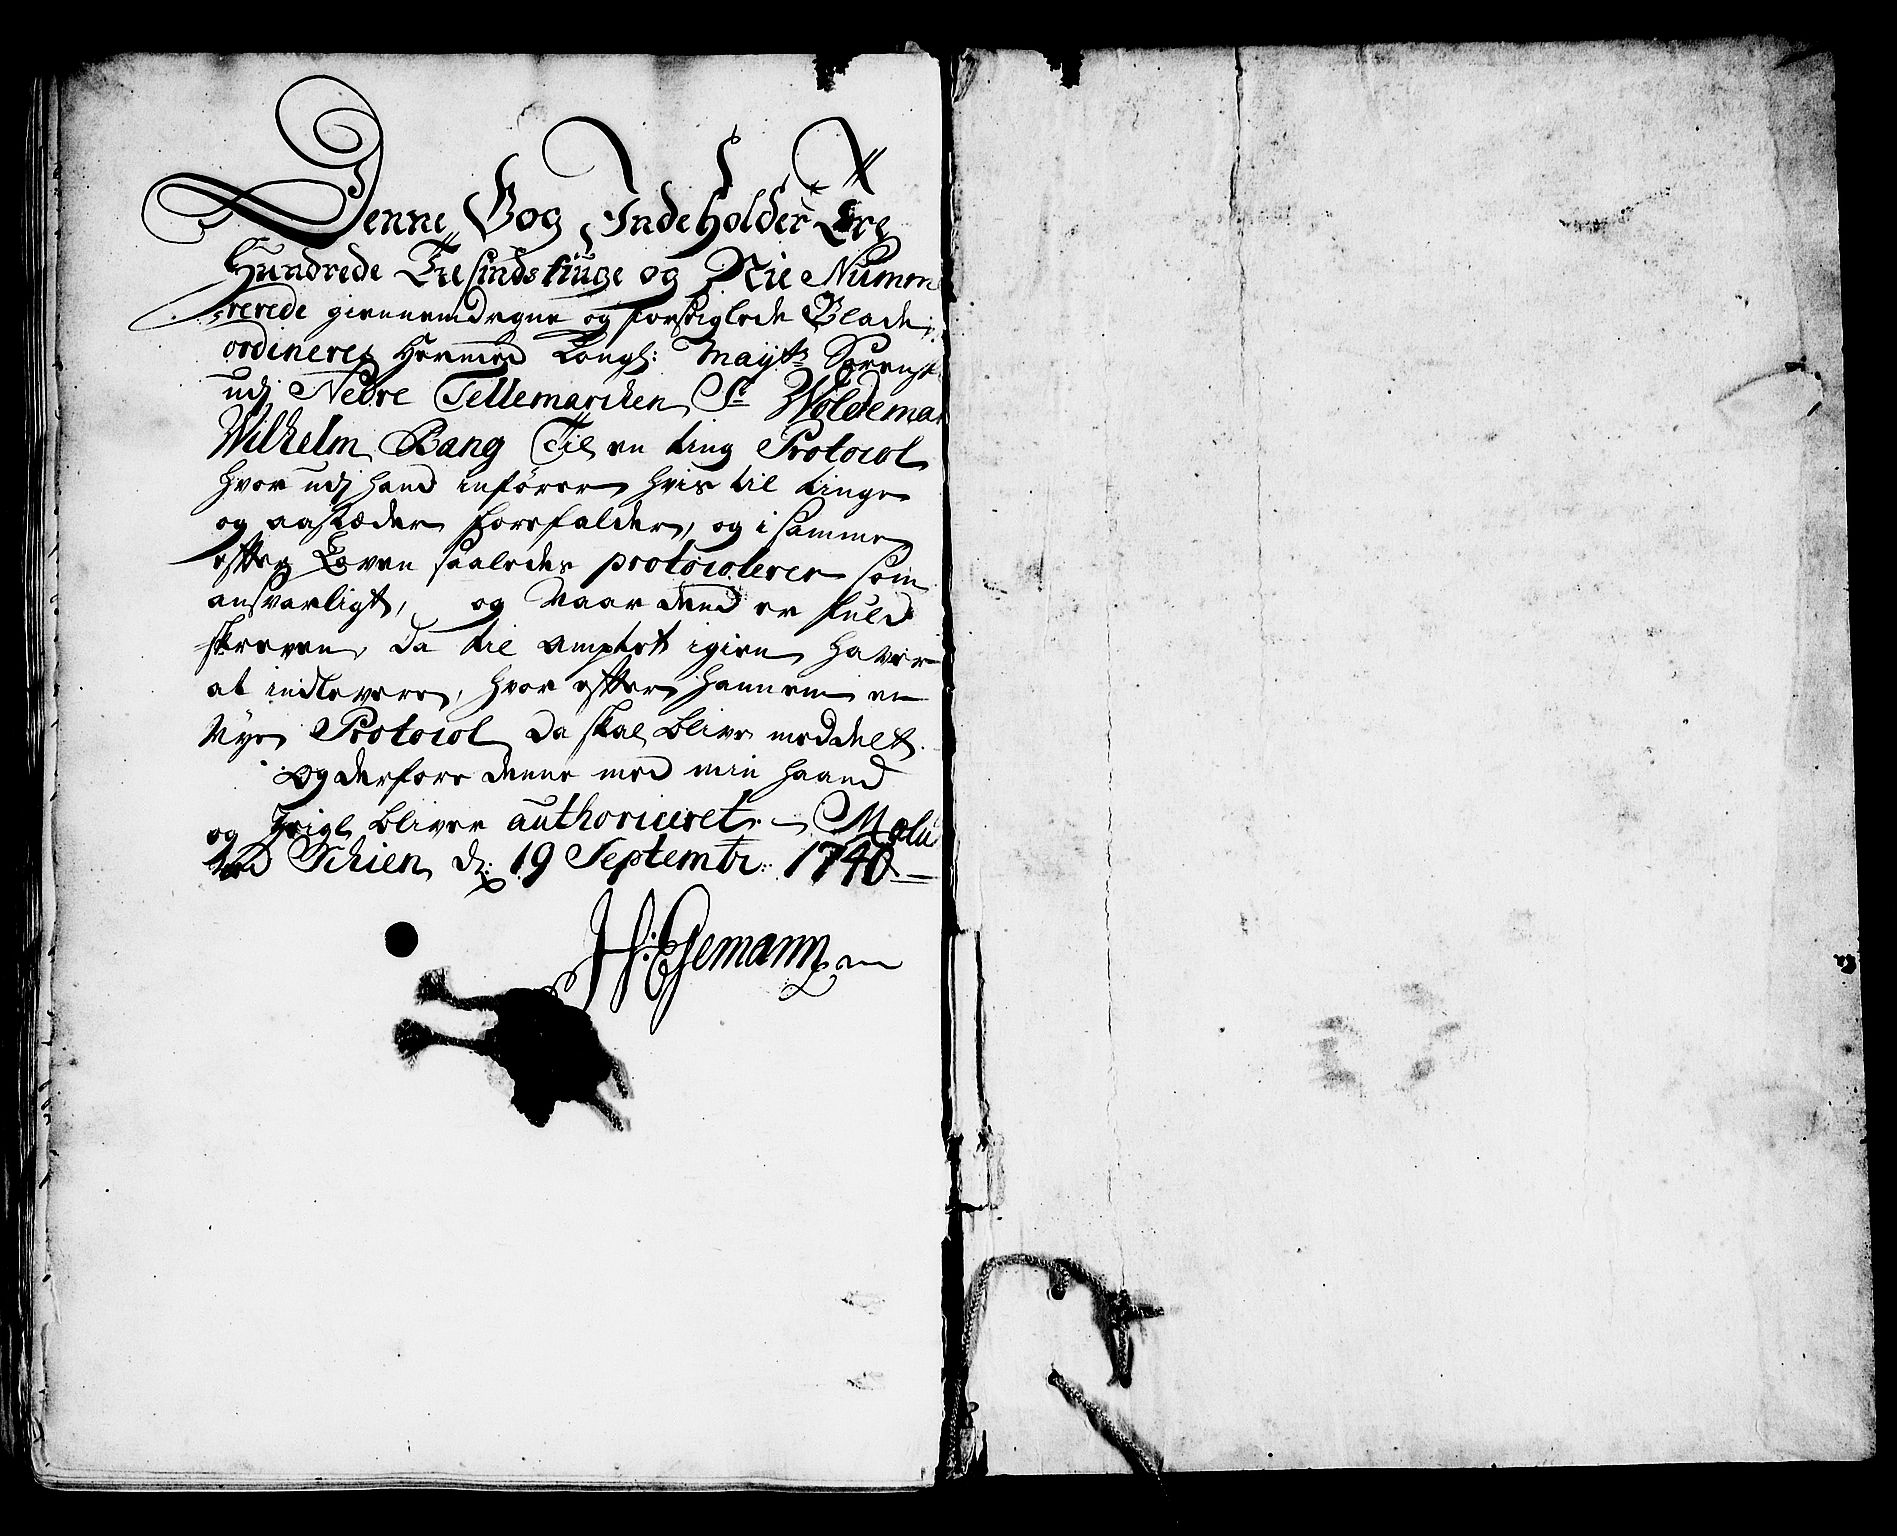 Denne Bog Indeholder Tre
Hundrede Tresindstiuge og Nie Numme
rerede giennemdragne og forseiglede Blade,
ordineres Hermed Kongl: Mayts Sorensk
udj Nedre Tellemarcken Sr Woldemar
Wilhelm Bang Til en ting Protocol
hvor udj hand indfører hvis til tinge
og aastæder forefalder, og i samme
efter Loven saaledes protocolerer som
ansvarligt, og Naar dend er fuld
skreven, da til Amptet igien haver
at indlevere, hvor efter hannem en
Nye Protocol da skal blive meddelt.
Og derfore denne med min haand
og Zeigl bliver authoriceret. Mælu
ved Schien d: 19 Septembr: 1740
H: Esemann